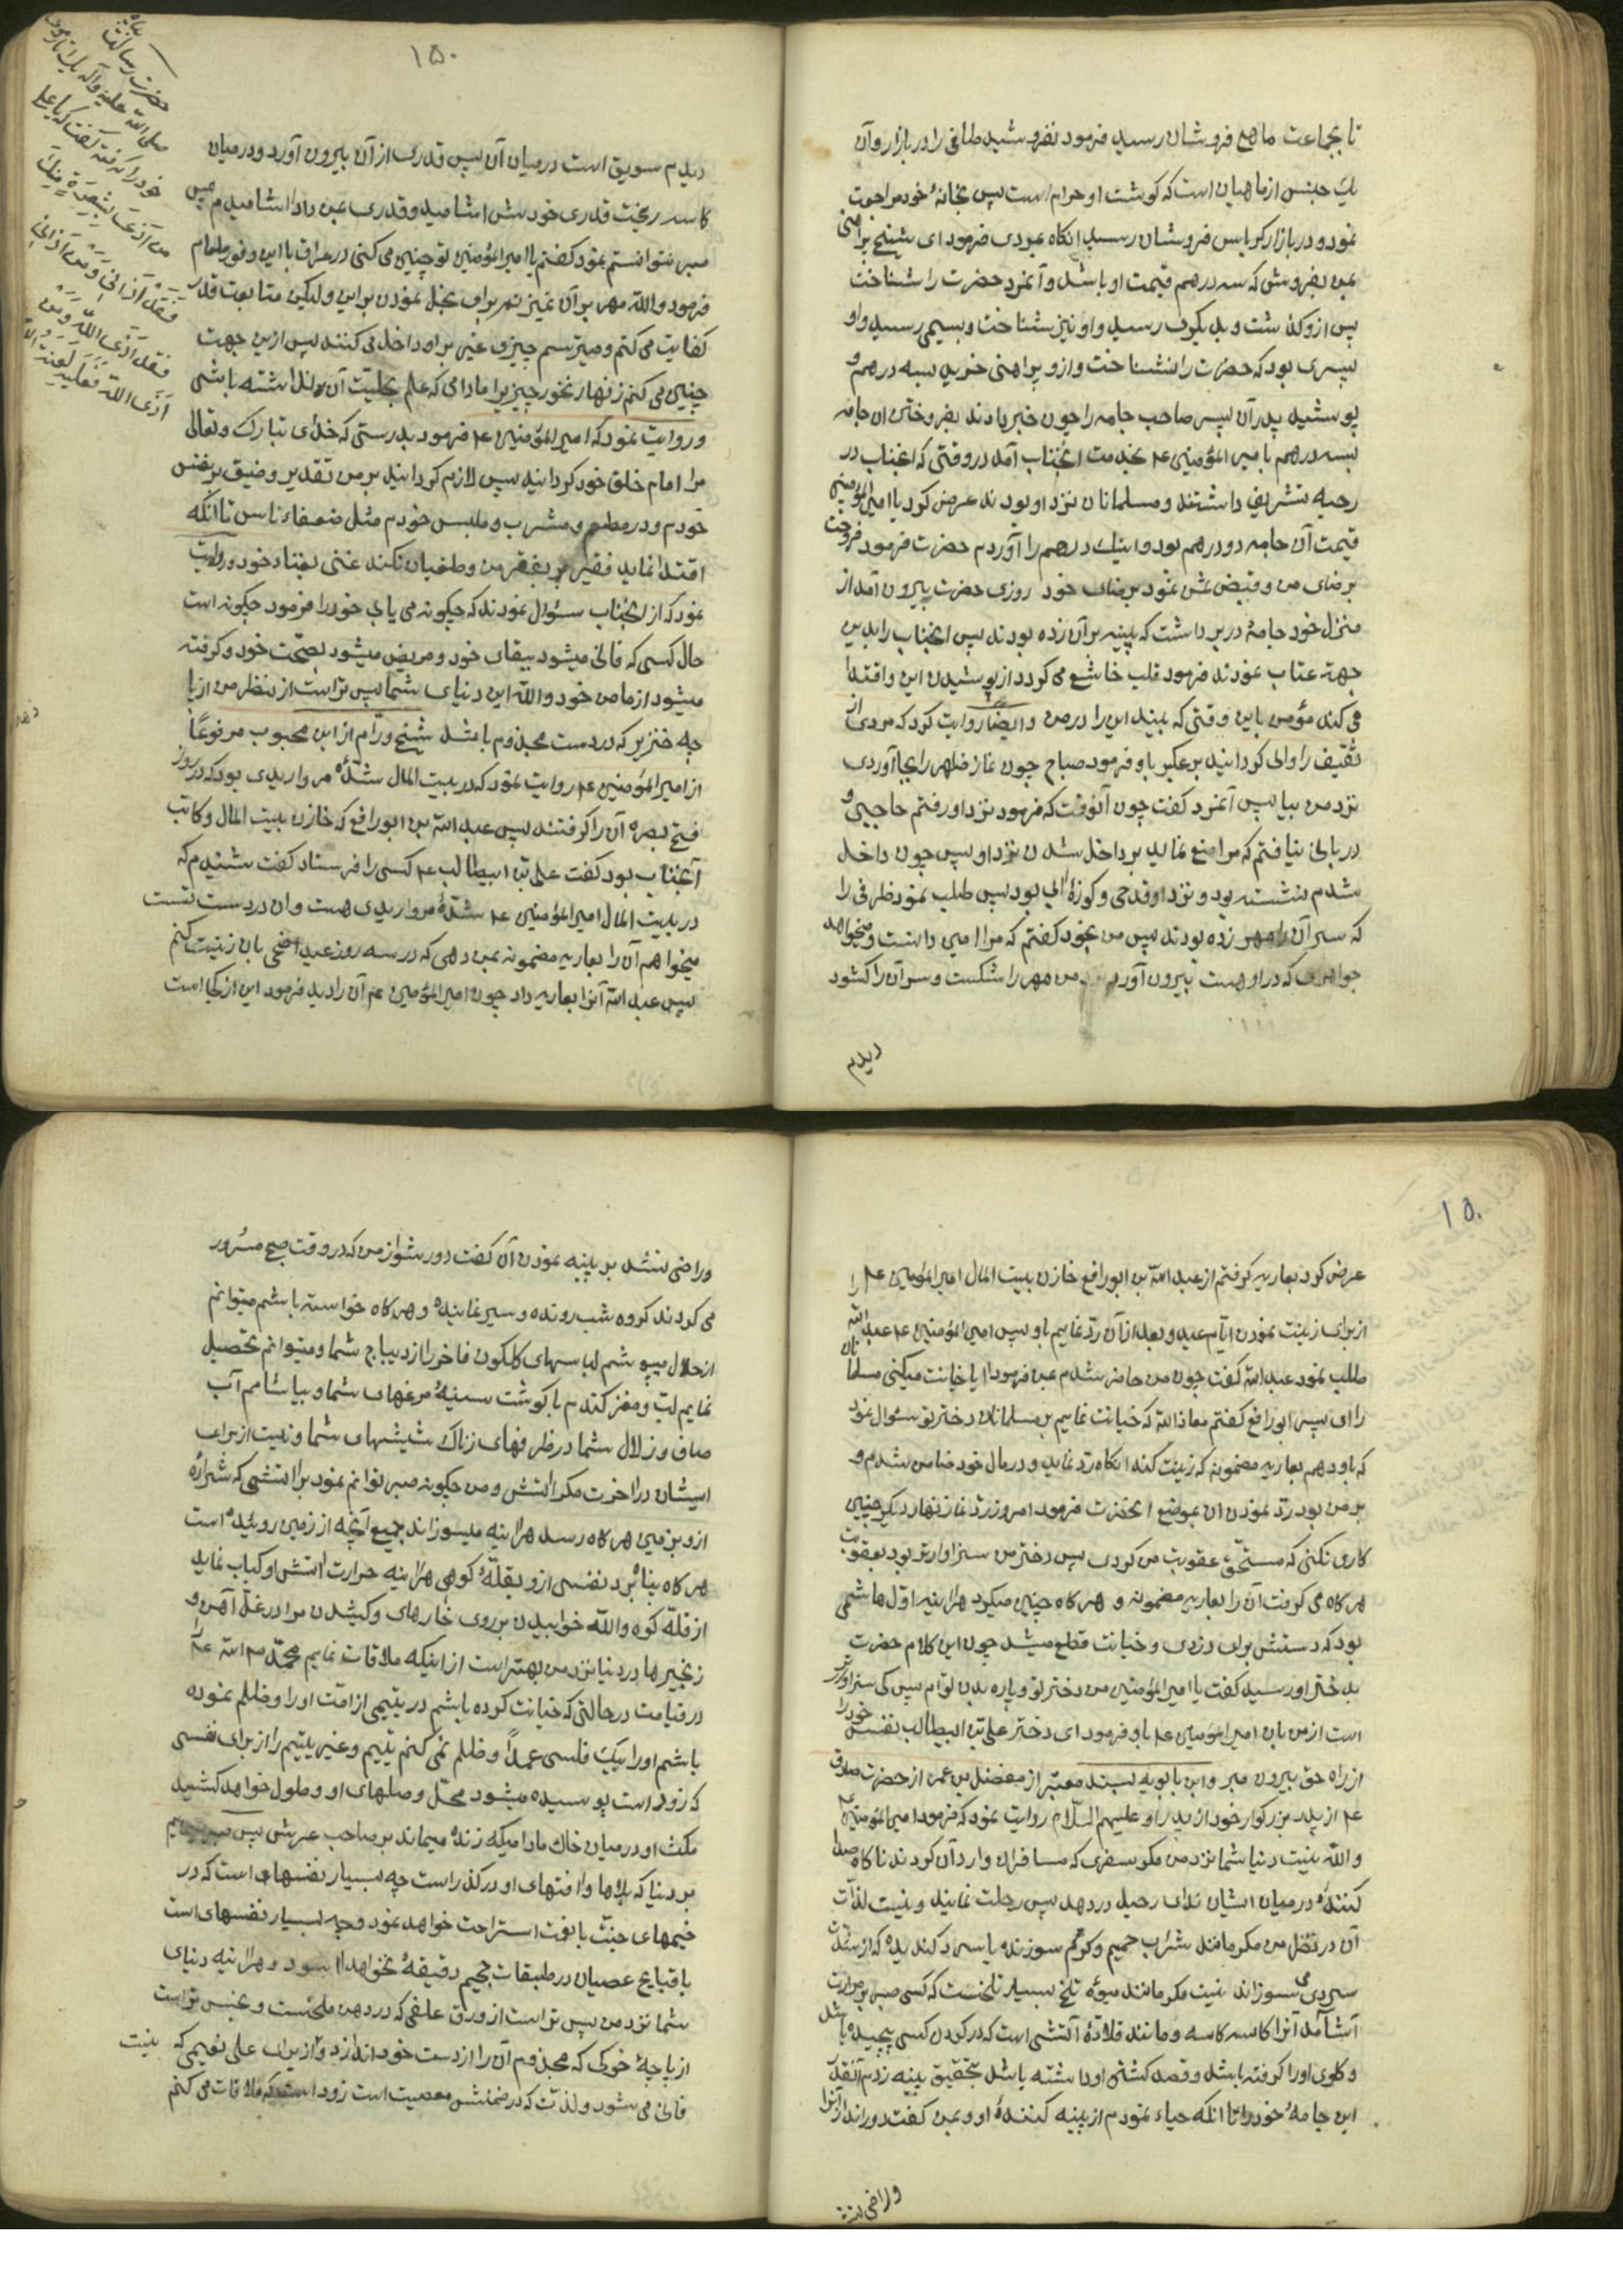 تا بجماعت ماهی فروشان رسید فرمود نفروشید طافی را در بازار و آن
یک جنس از ماهیان است که کوشت او حرام است پس بخانهٔ خود مراجعت
نمود و در بازار کرباس فروشان رسید انکاه بمردی فرمود ای شیخ پیراهنی
بمن بفروش که سه درهم قیمت او باشد و آنمرد حضرت را شناخت
پس ازو کذشت و بدیکری رسید و او نیز شناخت و بسیمی رسید و او
پسری بود که حضرت را نشناخت و ازو پیراهنی خرید بسه درهم و
پوشید پدر آن پسر صاحب جامه را چون خبر دادند بفروختن ان جامه
بسه درهم بامیر المؤمنین ع‍م بخدمت انجناب آمد در وقتی که انجناب در
رحبه تشریف داشتند و مسلمانان نزد او بودند عرض کرد یا امیر المؤمنین
قیمت آن جامه دو درهم بود و اینک درهم را آوردم حضرت فرمود فروخت
برضای من و قبض ثمن نمود برضای خود روزی حضرت بیرون آمد از
منزل خود جامهٔ در بر داشت که پینه بر آن زده بودند پس انجناب را بدین
جهة عتاب نمودند فرمود قلب خاشع می کردد از پوشیدن این و اقتدا
می کند مؤمن باین وقتی که بیند این را در من و ایضًا روایت کرد که مردی از
ثقیف را والی کردانید بر عکبر باو فرمود صباح چون نماز ظهر را بجا آوردی
نزد من بیا پس آنمرد کفت چون آنوقت که فرمود نزد او رفتم حاجبی و
دربانی نیافتم که مرا منع نماید بر داخل شدن نزد او پس چون داخل
شدم نشسته بود و نزد او قدحی و کوزهٔ آبی بود پس طلب نمود ظرفی را
که سر آن را مهر زده بودند پس من بخود کفتم که مرا امین دانست و میخواهد
جواهری که در او هست بیرون آورد پس مهر را شکست و سر آن را کشود
دیدم
۱۵۰
دیدم سویق است در میان آن پس قدری از آن بیرون آورد و در میان
کاسه ریخت قدری خودش اشامید و قدری بمن داد اشامیدم پس
صبر نتوانستم نمود کفتم یا امیر المؤمنین تو چنین می کنی در عراق با این وفور طعام
فرمود والله مهر بر آن نمیزنم برای بخل نمودن بر این و لیکن متابعت قدر
کفایت می کنم و میترسم چیزی غیر براو داخل می کنند پس ازین جهت
چنین می کنم زنهار نخور چیزیرا مادامی که علم بحلیّت آن ندانسته باشی
و روایت نمود که امیر المؤمنین ع‍م فرمود بدرستی که خدای تبارک و تعالی
مرا امام خلق خود کردانید پس لازم کردانید بر من تقدیر و ضیق بر نفس
خودم و در مطعم و مشرب و ملبس خودم مثل ضعفاء ناس تا انکه
اقتدا نماید فقیر بفقر من و طغیان نکند غنی بغناء خود و روایت
نمود که از انجناب سئوال نمودند که چکونه می یابی خود را فرمود چکونه است
حال کسی که فانی میشود ببقای خود و مریض میشود بصحّت خود و کرفته
میشود از مامن خود والله این دنیای شما پس تر است از نظر من از پا
چه خنزیر که در دست مجذوم باشد شیخ ورّام از ابن محبوب مرفوعًا
از امیر المؤمنین ع‍م روایت نمود که در بیت المال شدّهٔ مرواریدی بود که در روز
فتح بصره آن را کرفتند پس عبد الله بن ابو رافع که خازن بیت المال و کاتب
آنجناب بود کفت علی بن ابیطالب ع‍م کسی را فرستاد کفت شنیدم که
در بیت المال امیر المؤمنین ع‍م شدّهٔ مرواریدی هست و ان در دست تست
میخواهم آن را بعاریه مضمونه بمن دهی که در سه روز عید اضحی بان زینت کنم
پس عبد الله آنرا بعاریه داد چون امیر المؤمنین ع‍م آن را دید فرمود این از کجا است
حضرت رسالت
صلی الله علیه و آله یک تار موی
خود را کرفته کفت که یا علی
من آذی شعرة منک
فقد آذانی و من آذانی
فقد آذی الله و من
آذی الله فعلیه لعنة الله
۱۵۰
عرض کرد بعاریه کرفتم از عبد الله بن ابو رافع خازن بیت المال امیر المؤمنین ع‍م را
از برای زینت نمودن ایّام عید و بعد از آن ردّ نمایم باو پس امیر المؤمنین ع‍م عبد الله
طلب نمود عبد الله کفت چون من حاضر شدم بمن فرمود ایا خیانت میکنی مسلمانان
را ای پسر ابو رافع کفتم معاذ الله که خیانت نمایم بر مسلمانان دختر تو سئوال نمود
که باو دهم بعاریه مضمونه که زینت کند انکاه ردّ نماید و در مال خود ضامن شدم و
بر من بود ردّ نمودن ان بموضع انحضرت فرمود امروز ردّ نما زنهار دیکر چنین
کاری نکنی که مستحقّ عقوبت من کردی پس دختر من سزاوارتر بود بعقوبت
هر کاه می کرفت آن را بعاریه مضمونه و هر کاه چنین میکرد هراینه اوّل هاشمی
بود که دستش برای دزدی و خیانت قطع میشد چون این کلام حضرت
بدختر او رسید کفت یا امیر المؤمنین من دختر تو و پاره بدن توام پس کی سزاوارتر
است از من بان امیر المؤمنین ع‍م باو فرمود ای دختر علی بن ابیطالب نفس خود را
از راه حق بیرون مبر و ابن بابویه بسند معتبر از مفضل بن عمر از حضرت صادق
ع‍م از پدر بزرکوار خود از پدر او علیهم السّلام روایت نمود که فرمود امیر المؤمنین ع‍م
والله نیست دنیا شما نزد من مکر سفری که مسافران وارد آن کردند ناکاه صدا
کنندهٔ در میان ایشان ندای رحیل در دهد پس رحلت نمایند و نیست لذات
آن در نظر من مکر مانند شراب حمیم و کرکم سوزنده یا سرد کندیده که از شدّت
سردی می سوزاند نیست مکر مانند میوه تلخ بسیار تلخست که کسی صبر بر مرارت
آشامد آنرا کاسه کاسه و مانند قلادهٔ آتشی است که در کردن کسی پیچیده باشد
و کلوی او را کرفته باشد و قصد کشتن او داشته باشد بتحقیق پینه زدم آنقدر
این جامهٔ خود را تا انکه حیاء نمودم از پینه کنندهٔ او و بمن کفت دور انداز آنرا
و راضی نشد
و راضی نشد بر پینه نمودن آن کفت دور شو از من که در وقت صبح مسرور
می کردند کروه شب رونده و سیر نماینده و هر کاه خواسته باشم میتوانم
از حلال بپوشم لباسهای کلکون فاخر را از دیباج شما و میتوانم تحصیل
نمایم لبّ و مغز کندم با کوشت سینهٔ مرغهای شما و بیاشامم آب
صاف و زلال شما در ظرفهای زناک شیشهای شما و نیست از برای
ایشان در اخرت مکر اتش و من چکونه صبر توانم نمود بر اتشی که شرارهٔ
ازو بزمین هر کاه رسد هراینه میسوزاند جمیع آنچه از زمین روئیده است
هر کاه پناه برد نفسی ازو بقلّهٔ کوهی هراینه حرارت اتش او کباب نماید
از قلّه کوه والله خوابیدن بر روی خارهای و کشیدن مرا در غلّ آهن و
زنجیرها در دنیا نزد من بهتر است از اینکه ملاقات نمایم محمّد رسول الله را
در قیامت در حالتی که خیانت کرده باشم در یتیمی از امّت او را و ظلم نموده
باشم او را بیک فلسی عمدًا و ظلم نمی کنم یتیم و غیر یتیم را از برای نفسی
که زود است پوسیده میشود محلّ و صلهای او و طول خواهد کشید
مکث او در میان خاک مادامیکه زنده میماند بر صاحب عرش پس صبر مینمایم
بر دنیا که بلاها و افتهای او در کذر است چه بسیار نفسهای است که در
خیمهای جنّت یافت استراحت خواهد نمود و چه بسیار نفسهای است
با قبایح عصیان در طبقات جحیم دقیقهٔ نخواهد اسود و هراینه دنیای
شما نزد من پس تر است از ورق علفی که در دهن ملخست و نجس تر است
از پاچهٔ خوکی که مجذوم آن را از دست خود اندازد و از برای علی نعیمی که نیست
فانی می شود و لذتی که در ضمنش معصیت است زود است که ملاقات می کنم